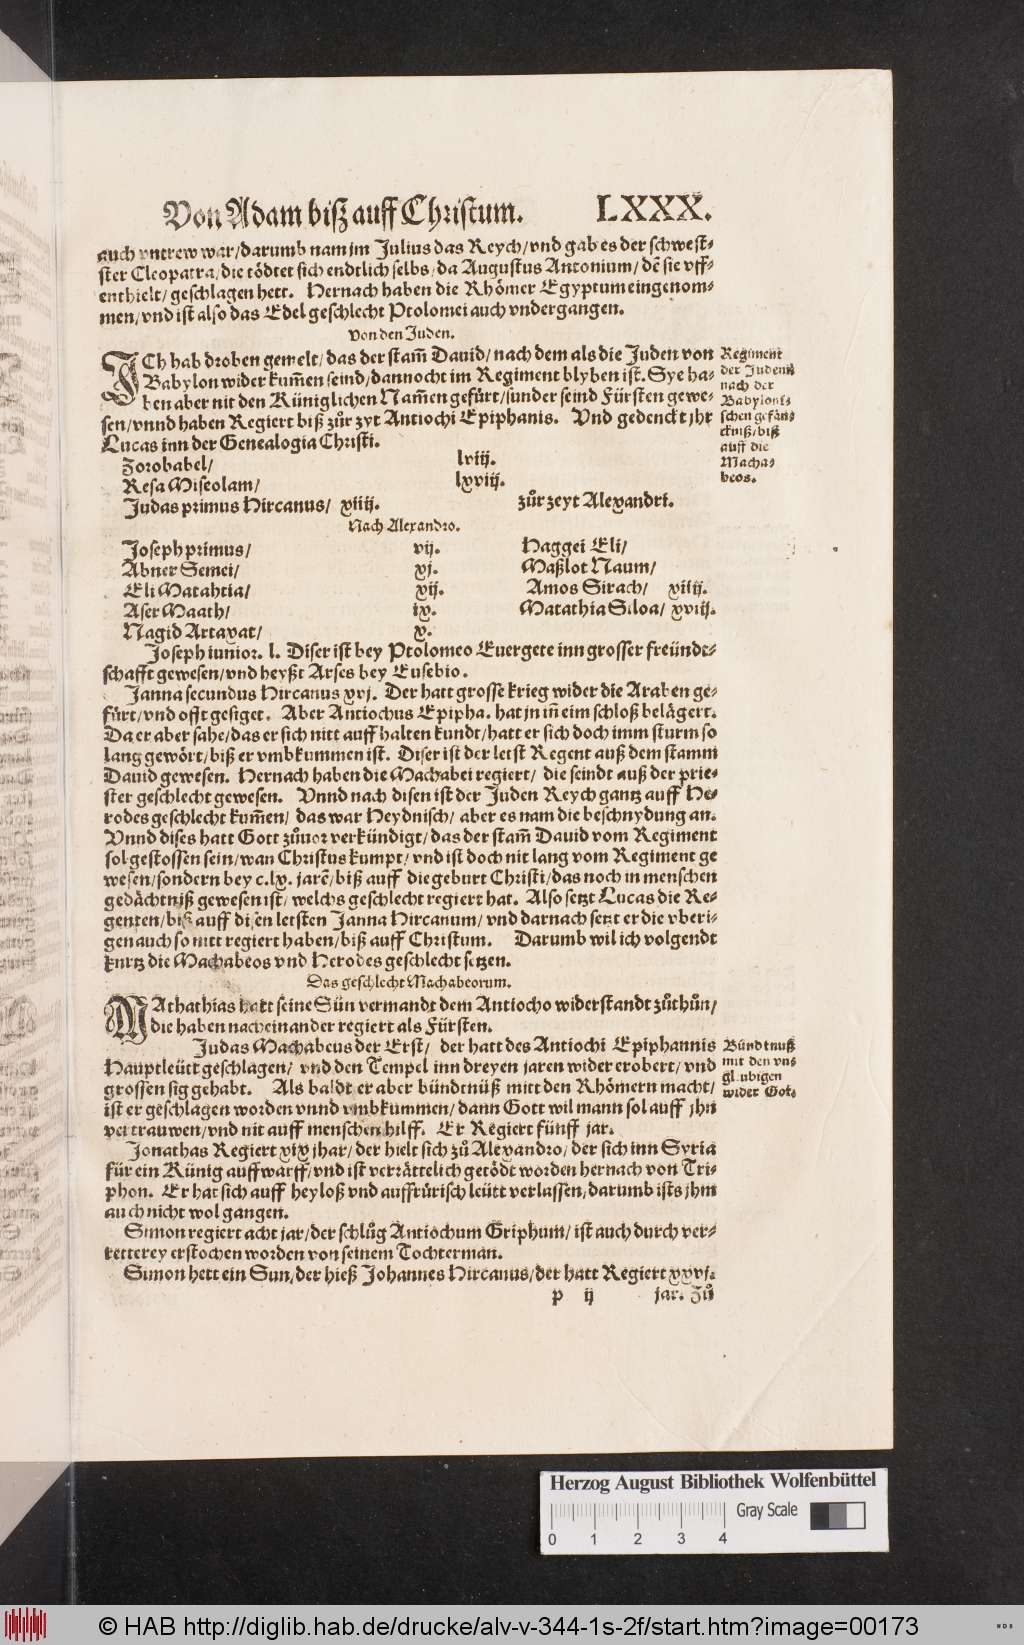 Von Adam biß auff Christum. LXXX.
auch vntrew war/darumb nam jm Julius das Reych/vnd gab es der schwest-
ster Cleopatra/die tödtet sich endtlich selbs/da Augustus Antonium/dẽ sie vff-
enthielt/geschlagen hett. Hernach haben die Rhömer Egyptum eingenom-
men/vnd ist also das Edel geschlecht Ptolomei auch vndergangen.
Von den Juden.
ICh hab droben gemelt/das der stam̃ Dauid/nach dem als die Juden von
Babylon wider kum̃en seind/dannocht im Regiment blyben ist. Sye ha-
ben aber nit den Küniglichen Nam̃en gefürt/sunder seind Fürsten gewe-
sen/vnnd haben Regiert biß zůr zyt Antiochi Epiphanis. Vnd gedenckt jhr
Lucas inn der Genealogia Christi.
Regiment
der Juden
nach der
Babyloni-
schen gefän-
ckniß/biß
auff die
Macha-
beos.
Zorobabel/ lviij.
Resa Miseolam/ lxviij.
Judas primus Hircanus/ xiiij. zůr zeyt Alexandri.
Nach Alexandro.
Joseph primus/ vij. Haggei Eli/
Abner Semei/ xj. Maßlot Naum/
Eli Matahtia/ xij. Amos Sirach/ xiiij.
Aser Maath/ ix. Matathia Siloa/ xviij.
Nagid Artaxat/ x.
Joseph iunior. l. Diser ist bey Ptolomeo Euergete inn grosser freündt-
schafft gewesen/vnd heyßt Arses bey Eusebio.
Janna secundus Hircanus xvj. Der hatt grosse krieg wider die Araben ge-
fürt/vnd offt gesiget. Aber Antiochus Epipha. hat jn iñ eim schloß belägert.
Da er aber sahe/das er sich nitt auff halten kundt/hatt er sich doch imm sturm so
lang gewört/biß er vmbkummen ist. Diser ist der letst Regent auß dem stamm
Dauid gewesen. Hernach haben die Machabei regiert/ die seindt auß der prie-
ster geschlecht gewesen. Vnnd nach disen ist der Juden Reych gantz auff He-
rodes geschlecht kum̃en/ das war Heydnisch/ aber es nam die beschnydung an.
Vnnd dises hatt Gott zůuor verkündigt/das der stam̃ Dauid vom Regiment
sol gestossen sein/wan Christus kumpt/vnd ist doch nit lang vom Regiment ge
wesen/sondern bey c.lx. jarẽ/biß auff die geburt Christi/das noch in menschen
gedächtniß gewesen ist/welchs geschlecht regiert hat. Also setzt Lucas die Re-
genten/biß auff disen letsten Janna Hircanum/vnd darnach setzt er die vberi-
gen auch so nitt regiert haben/biß auff Christum. Darumb wil ich volgendt
kurtz die Machabeos vnd Herodes geschlecht setzen.
Das geschlecht Machabeorum.
MAthathias hatt seine Sün vermandt dem Antiocho widerstandt zůthůn/
die haben nacheinander regiert als Fürsten.
Judas Machabeus der Erst/ der hatt des Antiochi Epiphannis
Hauptleütt geschlagen/ vnd den Tempel inn dreyen jaren wider erobert/vnd
grossen sig gehabt. Als baldt er aber bündtnüß mitt den Rhömern macht/
ist er geschlagen worden vnnd vmbkummen/dann Gott wil mann sol auff jhn
vertrauwen/vnd nit auff menschen hilff. Er Regiert fünff jar.
Bündtnuß
mit den vn-
gleubigen
wider Got.
Jonathas Regiert xix jhar/der hielt sich zů Alexandro/der sich inn Syria
für ein Künig auffwarff/vnd ist verrättelich getödt worden hernach von Tri-
phon. Er hat sich auff heyloß vnd auffrürisch leütt verlassen/darumb ists jhm
auch nicht wol gangen.
Simon regiert acht jar/der schlůg Antiochum Griphum/ist auch durch ver-
retterey erstochen worden von seinem Tochterman.
Simon hett ein Sun/der hieß Johannes Hircanus/der hatt Regiert xxvj.
p ij jar. Zů
Herzog August Bibliothek Wolfenbüttel
Gray Scale
0 1 2 3 4
© HAB http://diglib.hab.de/drucke/alv-v-344-1s-2f/start.htm?image=00173